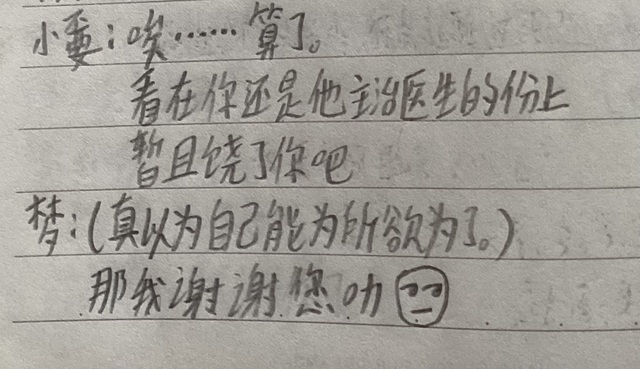 小委：唉……算了。
看在你还是他主治医生的份上
暂且饶了你吧
梦：(真以为自己能为所欲为了。)
那我谢谢您叻